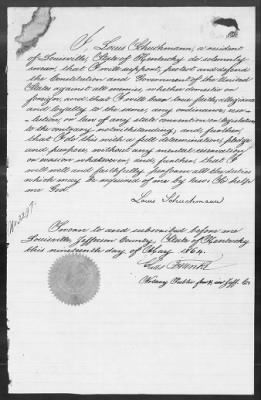 I, Louis Schuchmann, a resident
of Louisville, State of Kentucky do solemnly
swear, that I will support, protect and defend
the Constitution and Government of the United
States against all enemies, whether domestic or
foreign, and that I will bear true faith, allegiance
and loyalty to the same, any ordinance,
resolution, or law of any state convention or legislation
to the contrary notwithstanding; and further,
that I do this with a full determination, pledge
and purpose, without any mental reservation
or evasion whatsoever; and, further, that I
will well and faithfully perform all the duties
which may be required of me by law: So help
me God.
Louis Schuchmann
Sworn to and subscribed before me
Louisville, Jefferson County, State of Kentucky
this nineteenth day of May 1864.
Notary Public for & in Jeff. Co